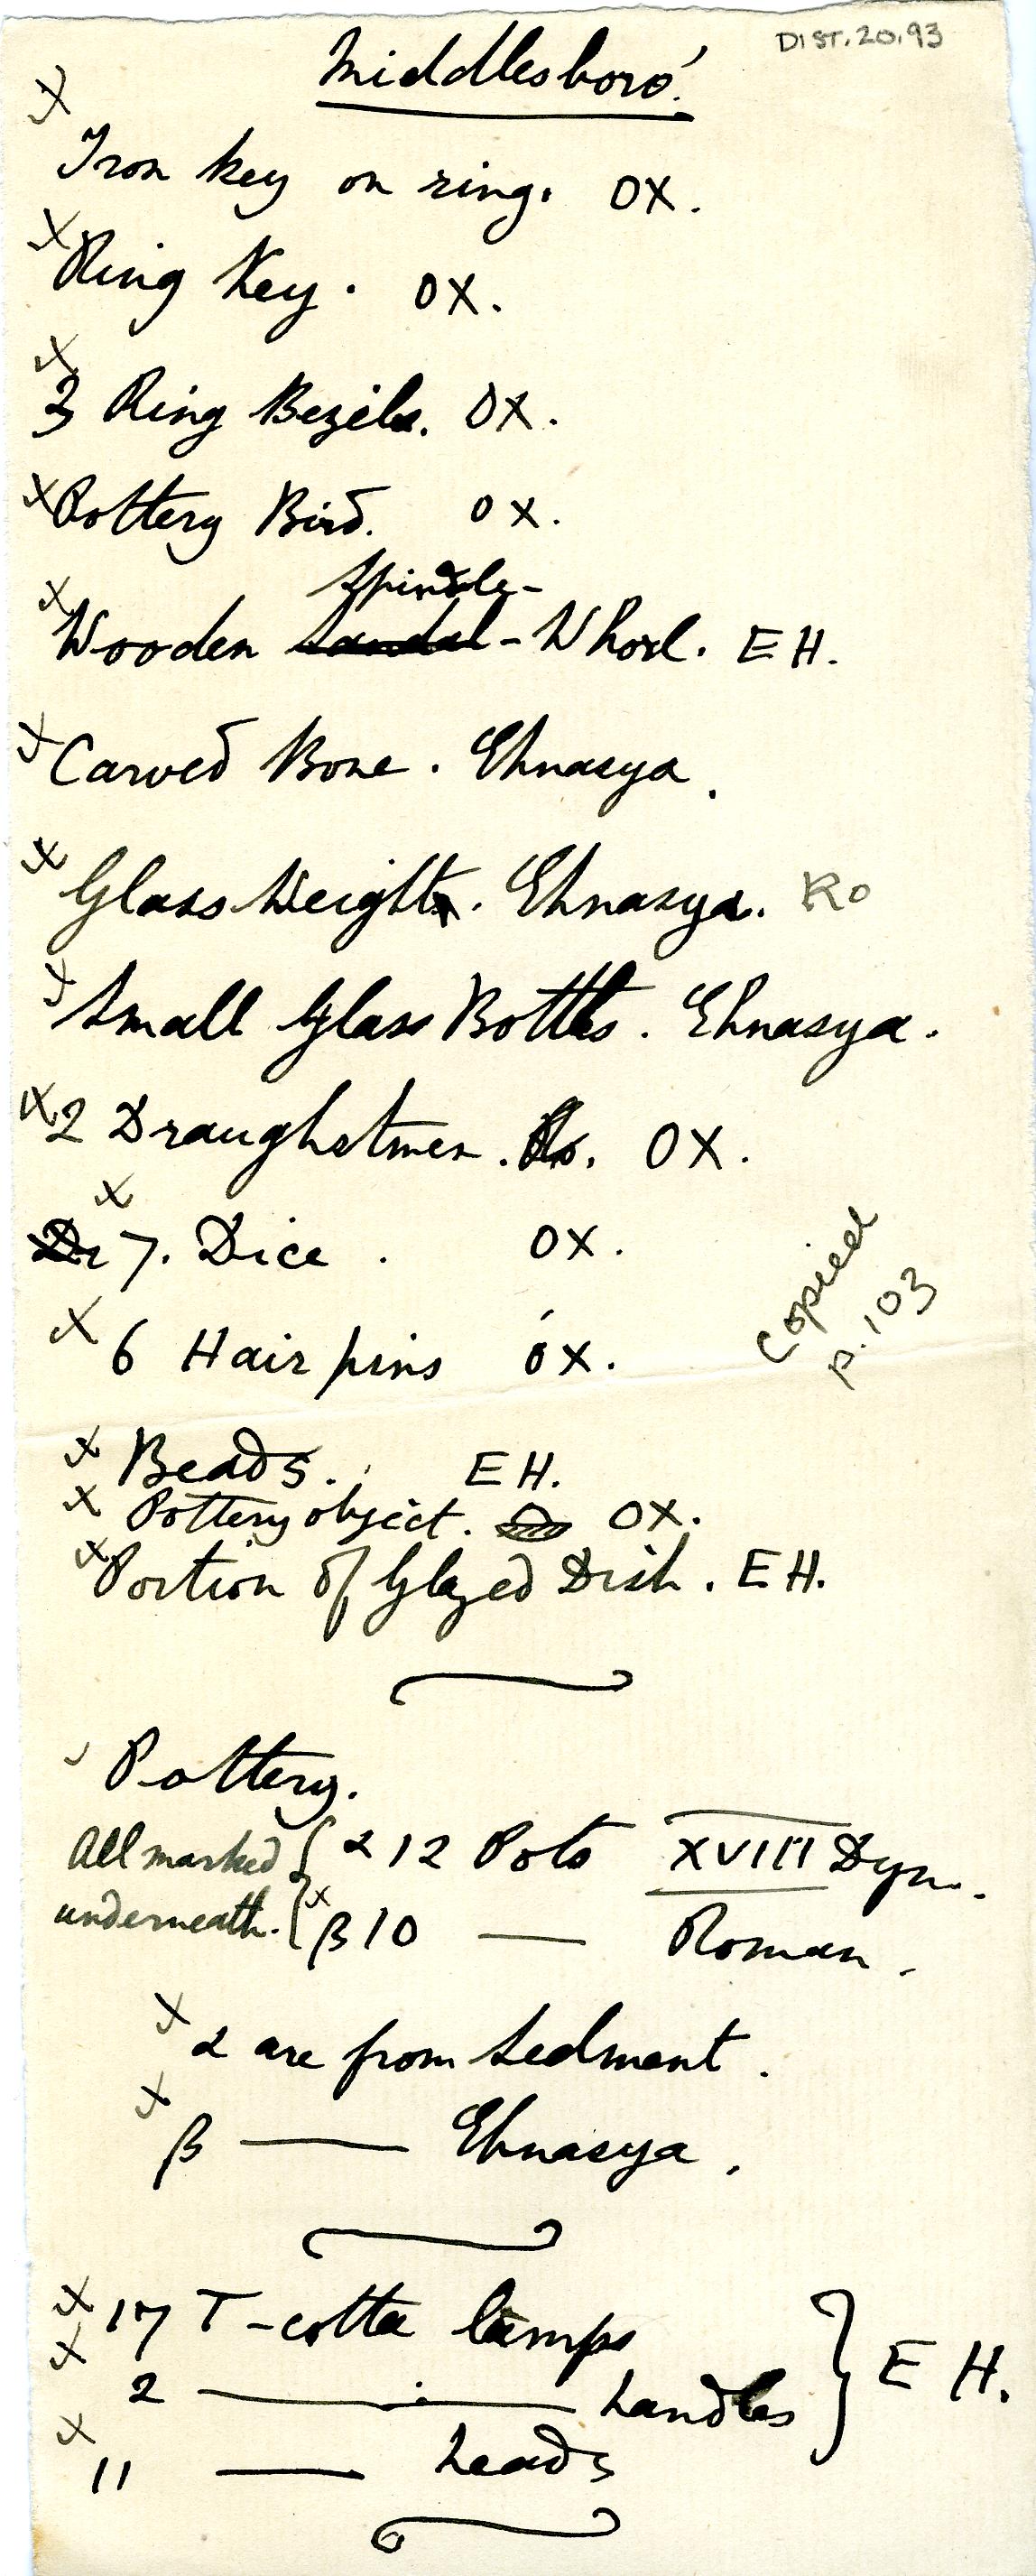 DIST.20.93
Middlesboro'.
Iron key on ring. OX.
Ring Key. OX.
3 Ring Bezils. OX.
Pottery Bird. OX.
Spindle-
Wooden Sandal-Whorl. EH.
Carved Bone. Ehnasya.
Glass Weight. Ehnasya. Ro
Small Glass Bottles. Ehnasya.
2 Draughtsmen. OX.
7. Dice. OX.
6 Hair pins OX.
Copied
p.103
Beads. EH.
Pottery object. OX.
Portion of Glazed Dish. EH.
Pottery.
All marked
underneath.
α 12 Pots XVIII Dyn.
β 10 — Roman.
α are from Sedment.
β — Ehnasya.
17 T-cotta lamps
2 — handles
11 — heads
EH.